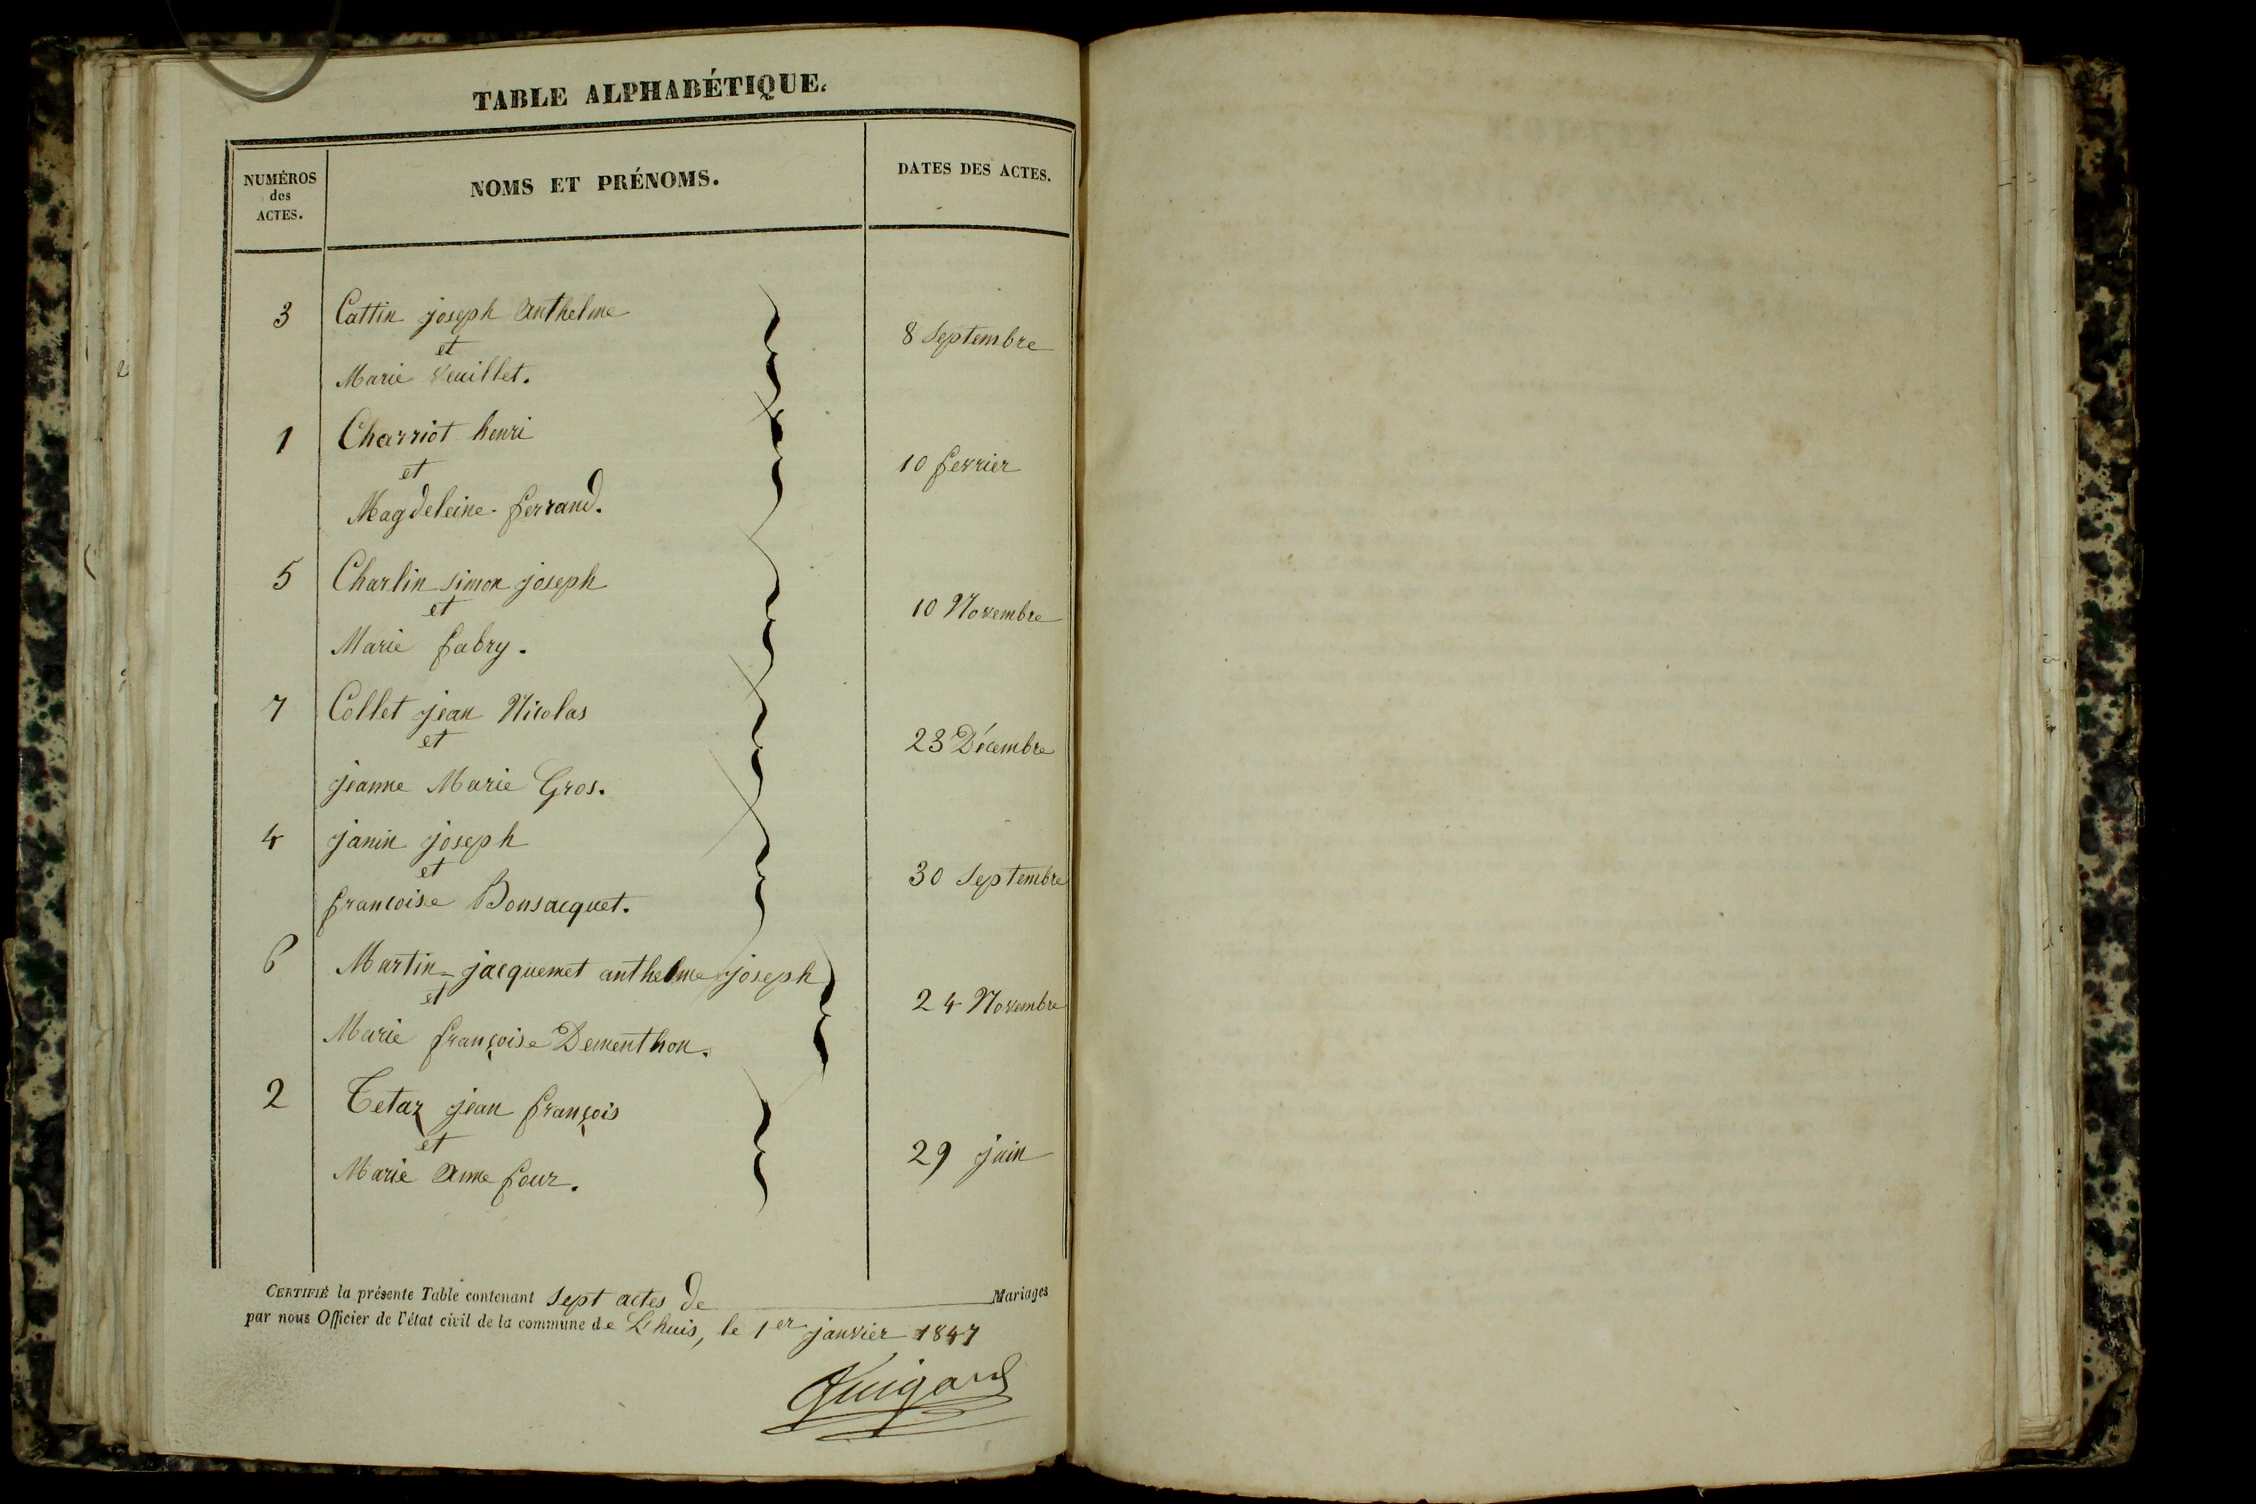 TABLE ALPHABÉTIQUE.
NUMÉROS
des
ACTES.
NOMS ET PRÉNOMS.
DATES DES ACTES.
3 Cattin joseph Anthelme
et
Marie Veuillet.
8 Septembre
1 Charriot henri
et
Magdeleine ferrand.
10 fevrier
5 Charlin Simon joseph
et
Marie fabry.
10 Novembre
7 Collet jean Nicolas
et
jeanne Marie Gros.
23 Décembre
4 janin joseph
et
francoise Bonsacquet.
30 Septembre
6 Martin-jacquemet anthelme joseph
et
Marie françoise Dementhon.
24 Novembre
2 Tetaz jean françois
et
Marie Anne four.
29 juin
CERTIFIÉ la présente Table contenant Sept actes de Mariages
par nous Officier de l'état civil de la commune de Lhuis, le 1er janvier 1847
Guigard